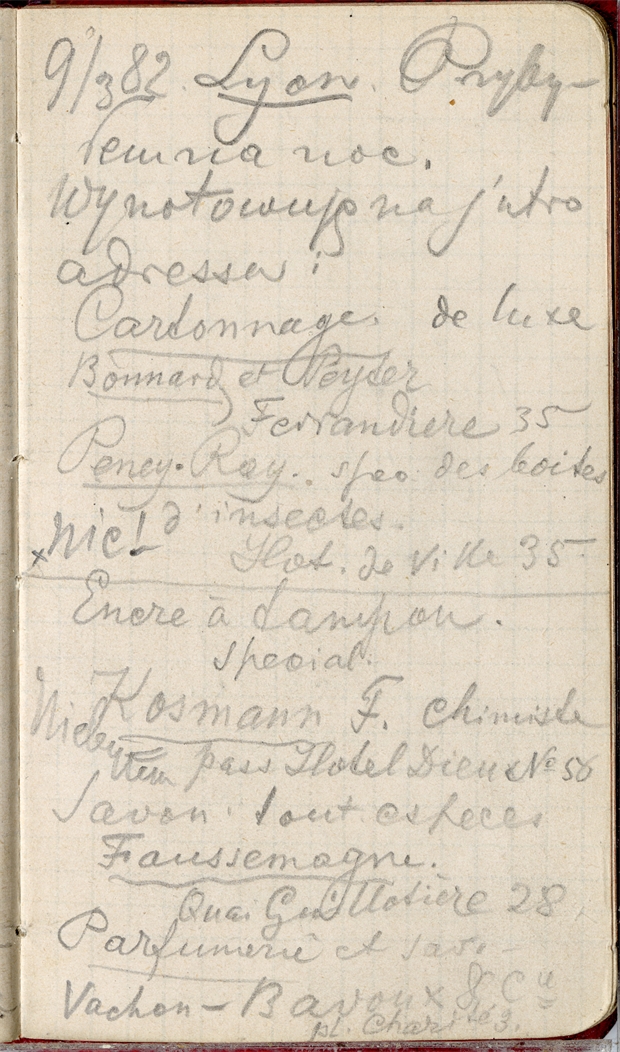 9/3 82. Lyon. Przyby-
łem na noc.
Wynotowuję na jutro
adressa:
Cartonnage. de luxe
Bonnard et Peyzer
Ferrandiere 35
Peney-Ray. spec des boites
d'insectes.
× Nic!
Hot. de Ville 35
Encre à tampon.
special.
Kosmann F. chimiste
Nie byłem pass Hotel Dieu No 56
Savon. tout especes
Faussemagne.
Quai Guillotière 28
Parfumerie et sav.-
Vachon - Bavoux & Cie
pl. Charité 3.